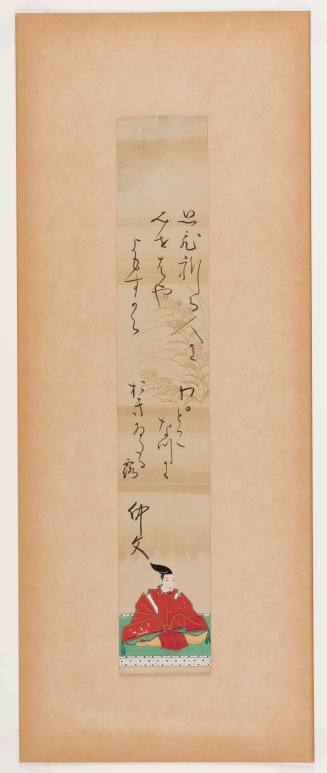 思ひしる人に
みせはや
よもすから
わかとこ
なつに
おきゐたる
露
仲文